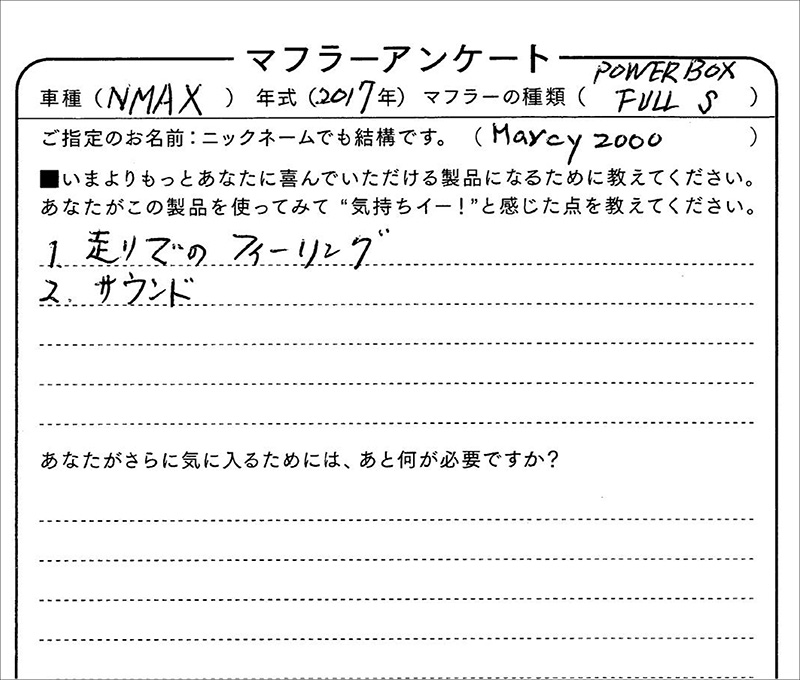 マフラーアンケート
車種（NMAX）年式（2017年）マフラーの種類（POWER BOX FULL S）
ご指定のお名前：ニックネームでも結構です。（Marcy 2000）
■いまよりもっとあなたに喜んでいただける製品になるために教えてください。
あなたがこの製品を使ってみて“気持ちイー！”と感じた点を教えてください。
1. 走りでの フィーリング
2. サウンド
あなたがさらに気に入るためには、あと何が必要ですか？